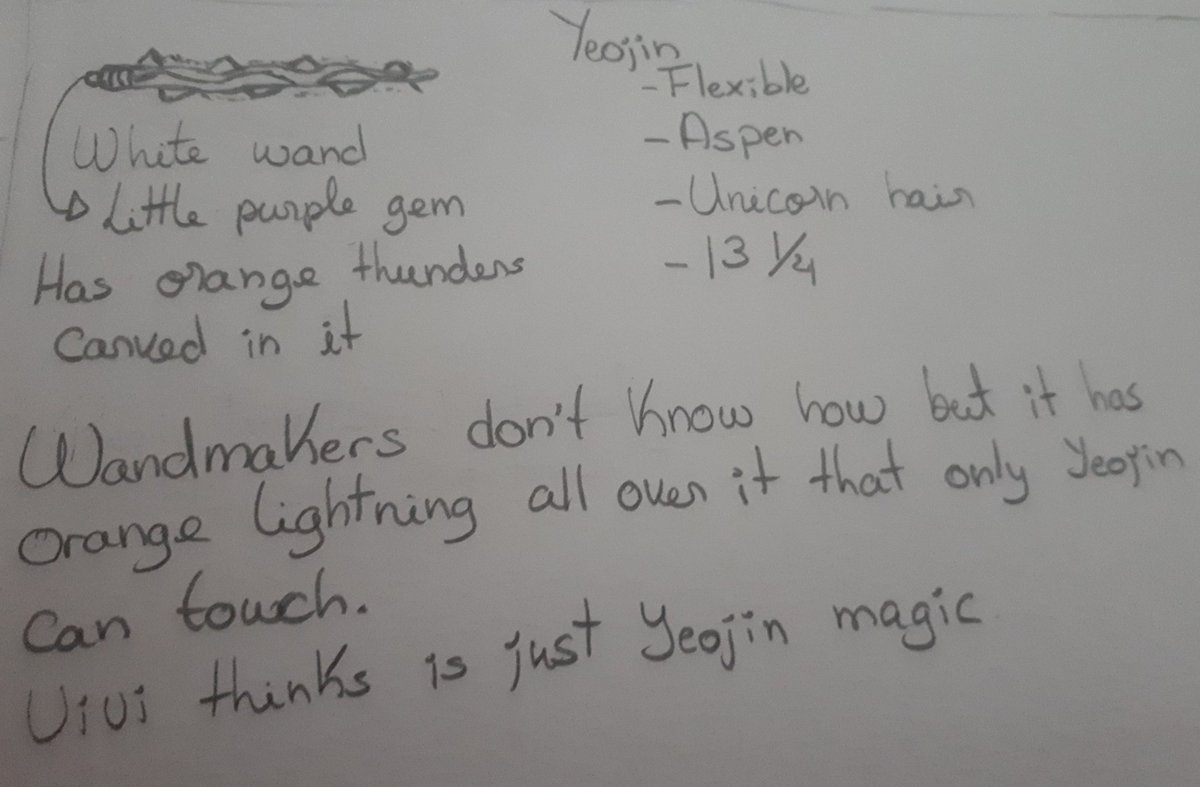 Yeojin
- Flexible
- Aspen
- Unicorn hair
- 13 1/4
White wand
Little purple gem
Has orange thunders
Carved in it
Wandmakers don't know how but it has
orange lightning all over it that only Yeojin
can touch.
ViVi thinks is just Yeojin magic